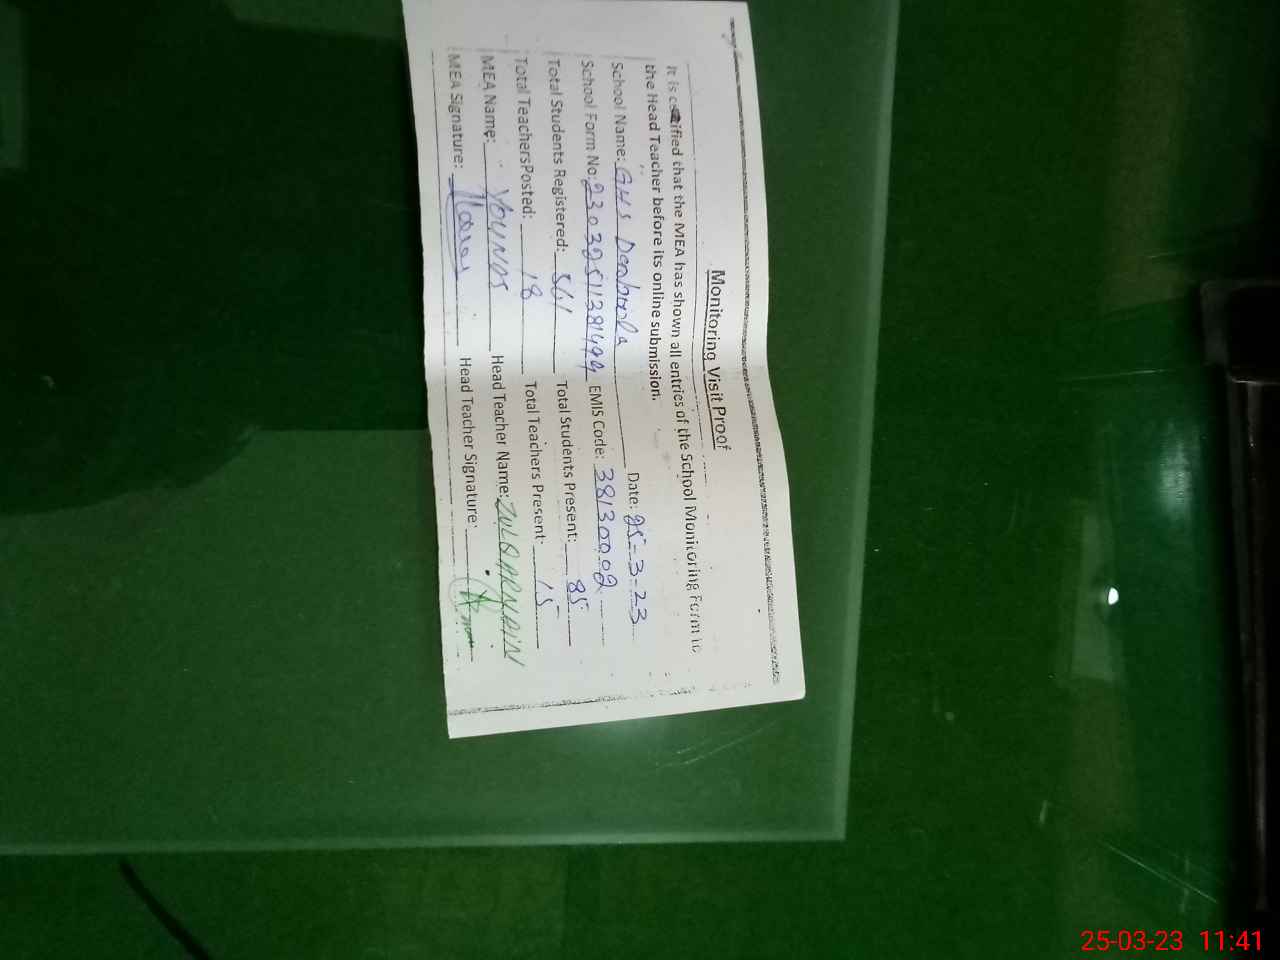 Monitoring Visit Proof
It is certified that the MEA has shown all entries of the School Monitoring Form to
the Head Teacher before its online submission.
School Name: GHS Date: 25-3-23
School Form No: 23032511381499 EMIS Code: 38130002
Total Students Registered: 561 Total Students Present: 85
Total TeachersPosted: 18 Total Teachers Present: 15
MEA Name: YOUNAS Head Teacher Name: ZULQARNAIN
MEA Signature: Head Teacher Signature:
25-03-23 11:41